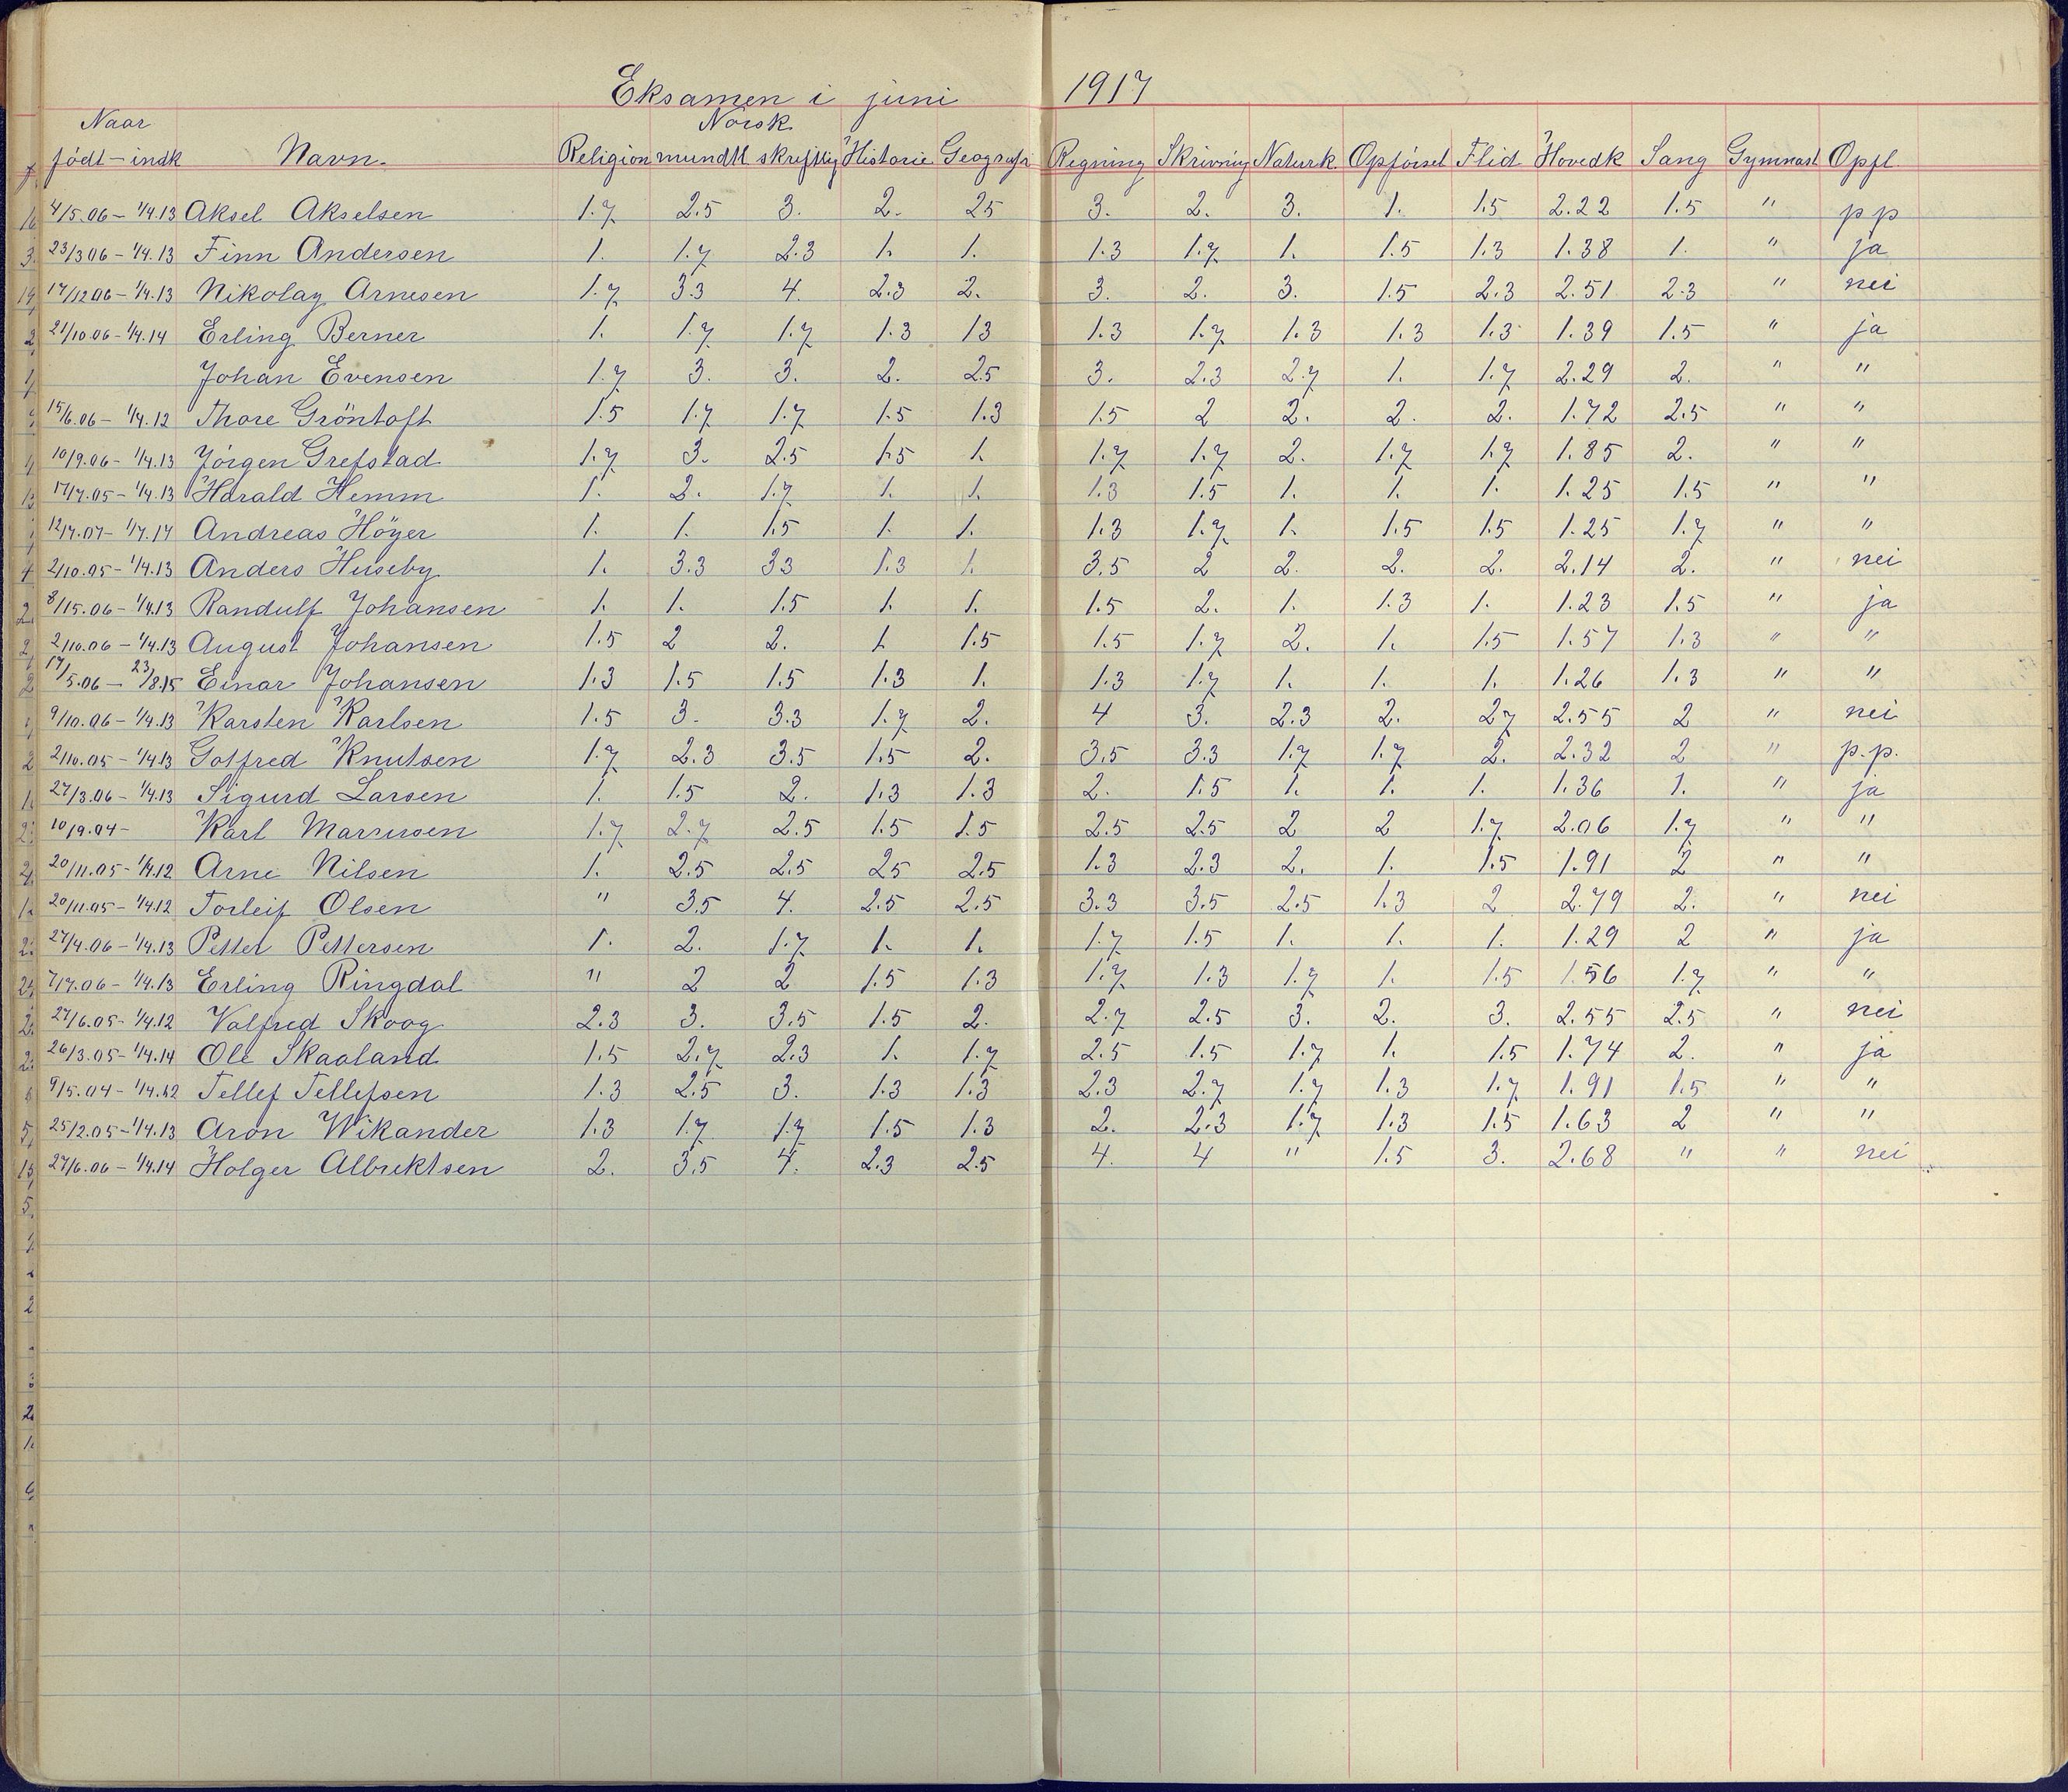 Eksamen i juni 1917
Naar Norsk
födt – indk Navn. Religion mundtl skriftlig Historie Geografi Regning Skrivning Naturk. Opförsel Flid Hovedk Sang Gymnast Oppf.
4/5.06 – 1/4.13 Aksel Akselsen 1.7 2.5 3. 2. 25 3. 2. 3. 1. 1.5 2.22 1.5 " p p
23/3 06 – 1/4.13 Finn Andersen 1. 1.7 2.3 1. 1. 1.3 1.7 1. 1.5 1.3 1.38 1. " ja
17/12 06 – 1/4.13 Nikolay Arnesen 1.7 3.3 4. 2.3 2. 3. 2. 3. 1.5 2.3 2.51 2.3 " nei
21/10 06 – 1/4.14 Erling Berner 1. 1.7 1.7 1.3 13 1.3 1.7 1.3 1.3 1.3 1.39 1.5 " ja
Johan Evensen 1.7 3. 3. 2. 25 3. 2.3 2.7 1. 1.7 2.29 2. " "
15/6.06 – 1/4.12 Thore Gröntoft 1.5 1.7 1.7 1.5 1.3 1.5 2 2. 2. 2. 1.72 2.5 " "
10/9.06 – 1/4.13 Jörgen Grefstad 1.7 3. 2.5 1.5 1. 1.7 1.7 2. 1.7 1.7 1.85 2. " "
17/7.05 – 1/4.13 Harald Hemm 1. 2. 1.7 1. 1. 1.3 1.5 1. 1. 1. 1.25 1.5 " "
12/7.07 – 1/7.14 Andreas Höyer 1. 1. 1.5 1. 1. 1.3 1.7 1. 1.5 1.5 1.25 1.7 " "
2/10.05 – 1/4.13 Anders Huseby 1. 3.3 33 1.3 1. 3.5 2 2. 2. 2. 2.14 2. " nei
8/15.06 – 1/4.13 Randulf Johansen 1. 1. 1.5 1. 1. 1.5 2. 1. 1.3 1. 1.23 1.5 " ja
2/10.06 – 1/4.13 August Johansen 1.5 2 2. 1. 1.5 1.5 1.7 2. 1. 1.5 1.57 1.3 " "
17/5.06 – 23/8.15 Einar Johansen 1.3 1.5 1.5 1.3 1. 1.3 1.7 1. 1. 1. 1.26 1.3 " "
9/10.06 – 1/4.13 Karsten Karlsen 1.5 3. 3.3 1.7 2. 4 3. 2.3 2. 27 2.55 2 " nei
2/10.05 – 1/4.13 Gotfred Knutsen 1.7 2.3 3.5 1.5 2. 3.5 3.3 1.7 1.7 2. 2.32 2 " p.p.
27/3.06 – 1/4.13 Sigurd Larsen 1. 1.5 2. 1.3 1.3 2. 1.5 1. 1. 1. 1.36 1. " ja
10/9.04 – Karl Mariusen 1.7 2.7 2.5 1.5 1.5 2.5 2.5 2 2 1.7 2.06 1.7 " "
20/11.05 – 1/4.12 Arne Nilsen 1. 2.5 2.5 25 2.5 1.3 2.3 2. 1. 1.5 1.91 2 " "
20/11.05 – 1/4.12 Torleif Olsen " 3.5 4. 2.5 2.5 3.3 3.5 2.5 1.3 2 2.79 2. " nei
27/4.06 – 1/4.13 Petter Pettersen 1. 2. 1.7 1. 1. 1.7 1.5 1. 1. 1. 1.29 2 " ja
7/7.06 – 1/4.13 Erling Ringdal " 2 2 1.5 1.3 1.7 1.3 1.7 1. 1.5 1.56 1.7 " "
27/6.05 – 1/4.12 Valfred Skoog 2.3 3. 3.5 1.5 2. 2.7 2.5 3. 2. 3. 2.55 2.5 " nei
26/3.05 – 1/4.14 Ole Skaaland 1.5 2.7 2.3 1. 1.7 2.5 1.5 1.7 1. 1.5 1.74 2. " ja
9/5.04 – 1/4.12 Tellef Tellefsen 1.3 2.5 3. 1.3 1.3 2.3 2.7 1.7 1.3 1.7 1.91 1.5 " "
25/2.05 – 1/4.13 Aron Wikander 1.3 1.7 1.7 1.5 1.3 2. 2.3 1.7 1.3 1.5 1.63 2 " "
27/6.06 – 1/4.14 Holger Albrektsen 2. 3.5 4. 2.3 2.5 4. 4 " 1.5 3. 2.68 " " nei